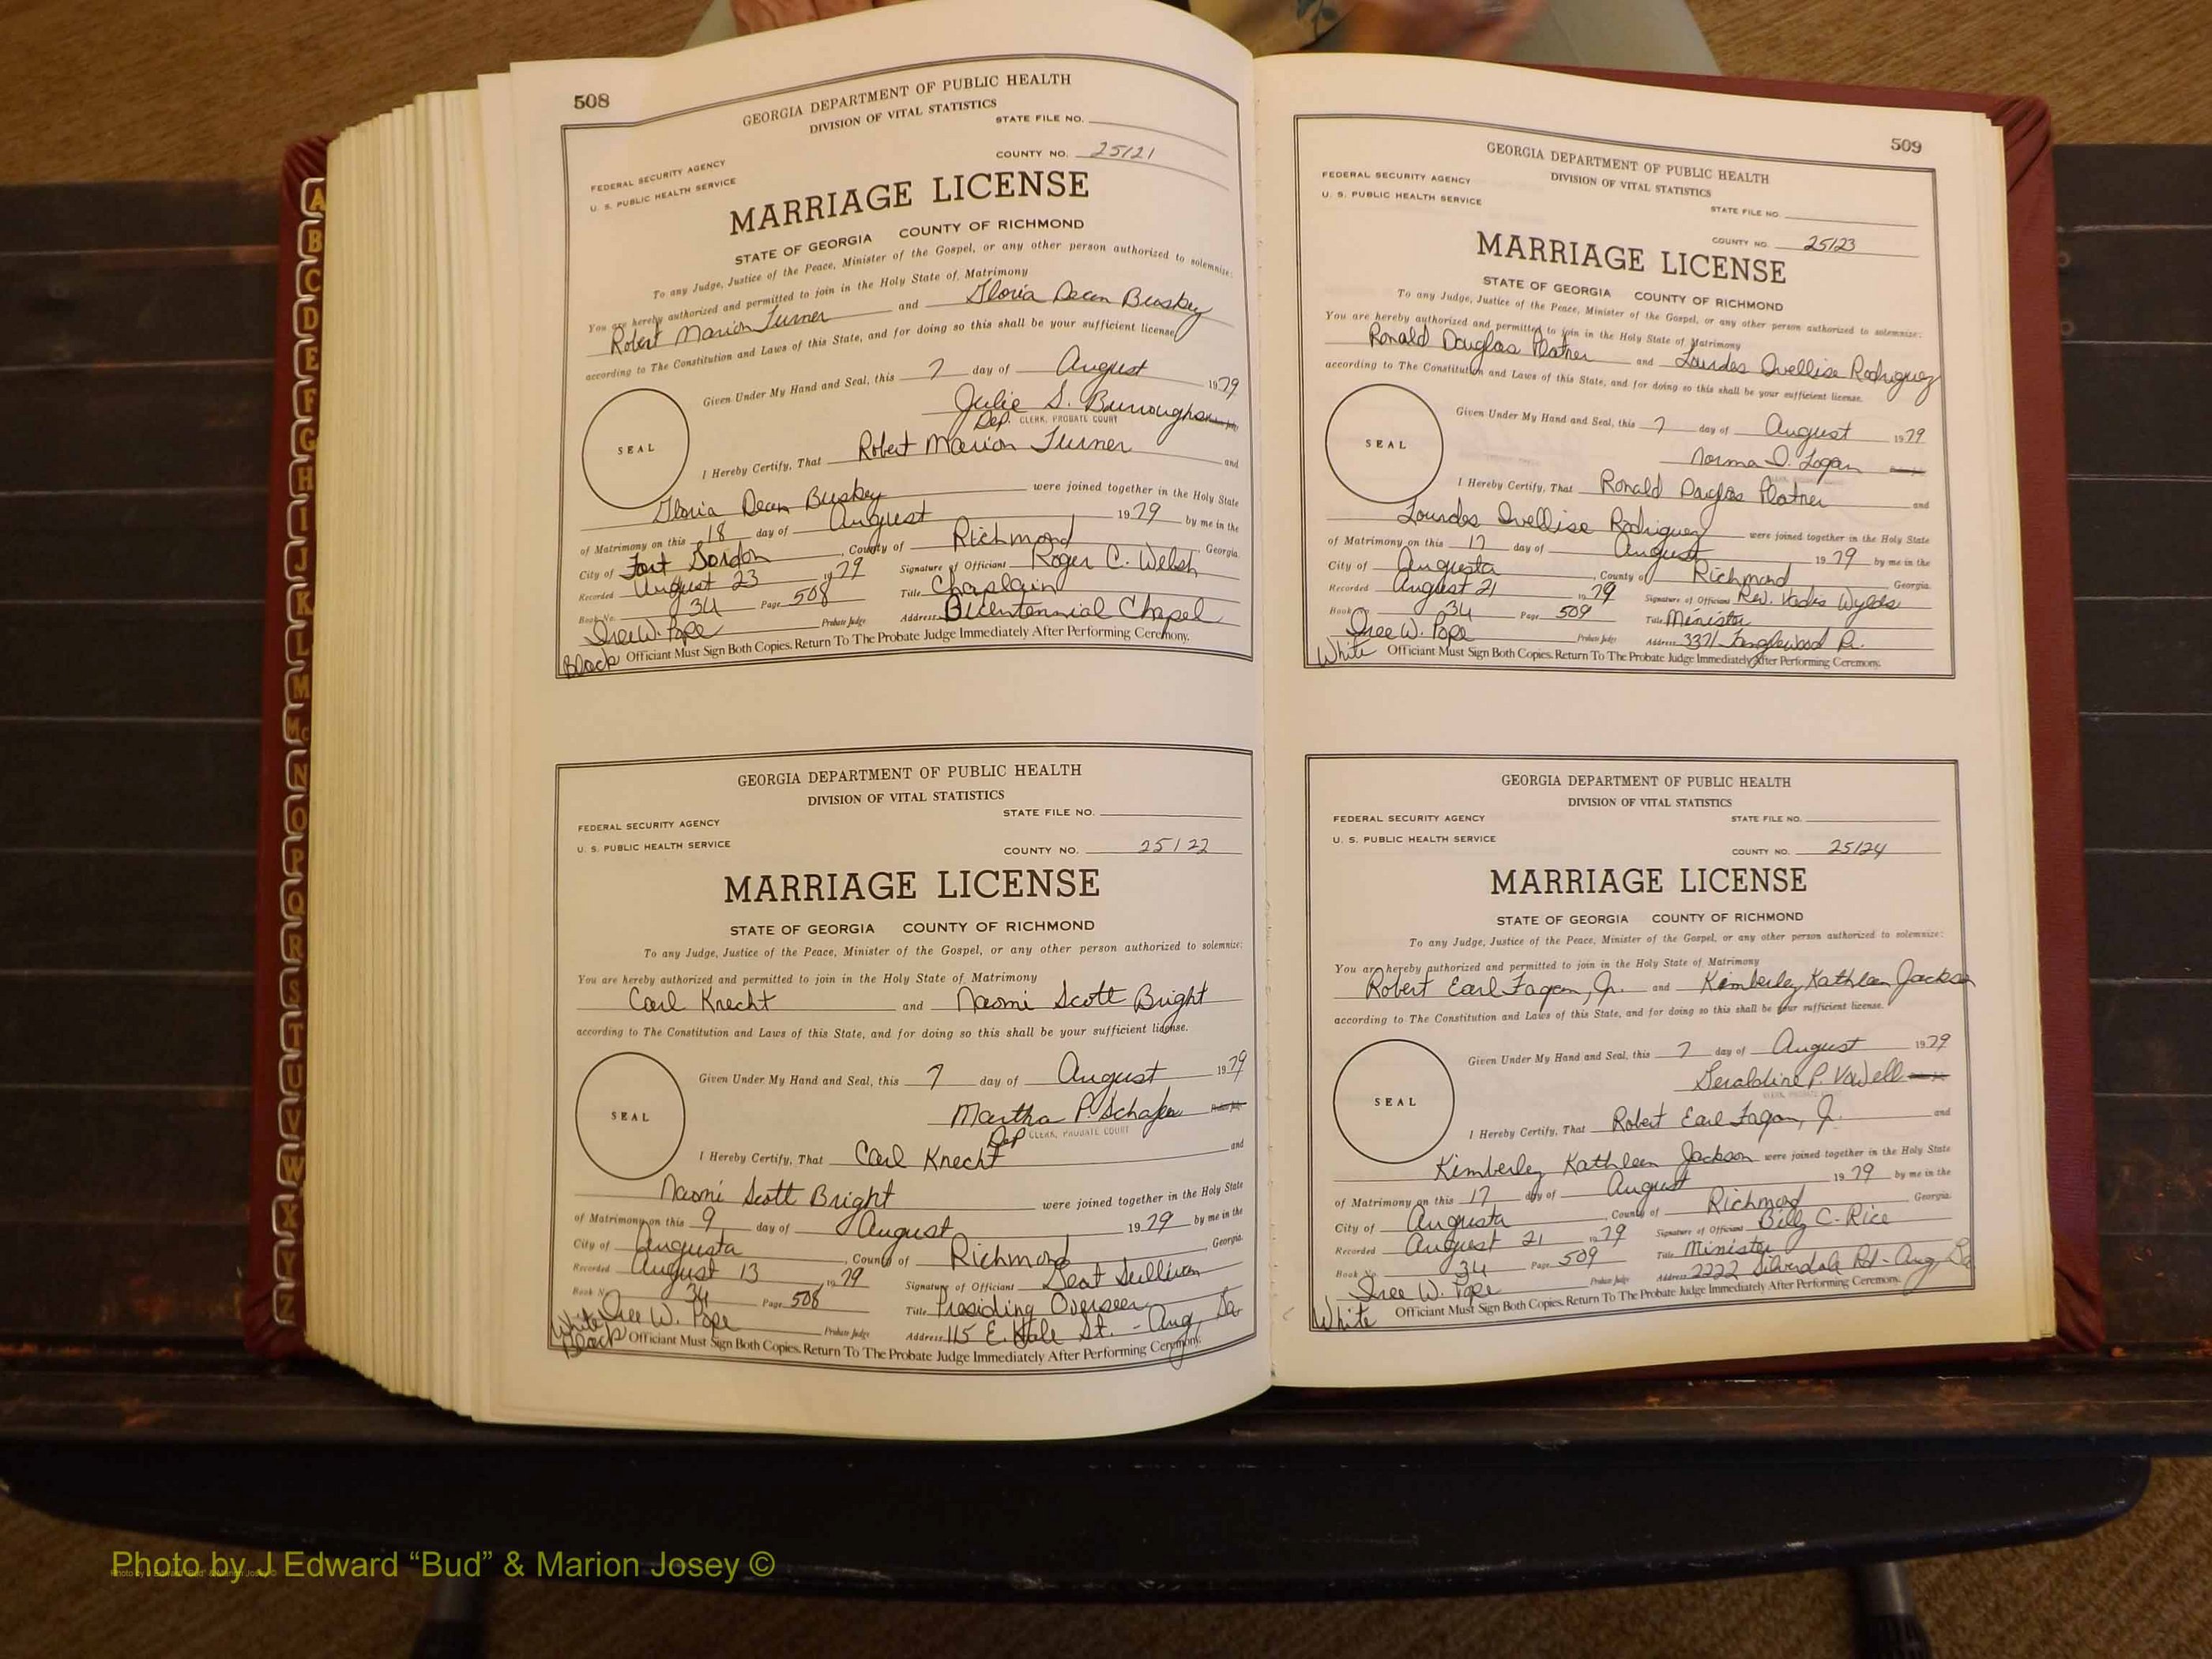 508
GEORGIA DEPARTMENT OF PUBLIC HEALTH
DIVISION OF VITAL STATISTICS
STATE FILE NO.
COUNTY NO. 25121
FEDERAL SECURITY AGENCY
U. S. PUBLIC HEALTH SERVICE
MARRIAGE LICENSE
STATE OF GEORGIA COUNTY OF RICHMOND
To any Judge, Justice of the Peace, Minister of the Gospel, or any other person authorized to solemnize:
You are hereby authorized and permitted to join in the Holy State of Matrimony
Robert Marion Turner and Gloria Dean Buskey
according to The Constitution and Laws of this State, and for doing so this shall be your sufficient license.
Given Under My Hand and Seal, this 7 day of August 1979
Julie S. Burroughs
Dep. CLERK, PROBATE COURT
SEAL
I Hereby Certify, That Robert Marion Turner and
Gloria Dean Buskey were joined together in the Holy State
of Matrimony on this 18 day of August 1979 by me in the
City of Fort Gordon, County of Richmond, Georgia.
Recorded August 23 1979 Signature of Officiant Roger C. Welsh
Book No. 34 Page 508 Title Chaplain
Probate Judge Address Bicentennial Chapel
W. Pope
Black Officiant Must Sign Both Copies. Return To The Probate Judge Immediately After Performing Ceremony.
GEORGIA DEPARTMENT OF PUBLIC HEALTH
DIVISION OF VITAL STATISTICS
STATE FILE NO.
FEDERAL SECURITY AGENCY
U. S. PUBLIC HEALTH SERVICE
COUNTY NO. 25122
MARRIAGE LICENSE
STATE OF GEORGIA COUNTY OF RICHMOND
To any Judge, Justice of the Peace, Minister of the Gospel, or any other person authorized to solemnize:
You are hereby authorized and permitted to join in the Holy State of Matrimony
Carl Knecht and Naomi Scott Bright
according to The Constitution and Laws of this State, and for doing so this shall be your sufficient license.
Given Under My Hand and Seal, this 7 day of August 1979
Martha P. Schafer
Dep CLERK, PROBATE COURT
SEAL
I Hereby Certify, That Carl Knecht and
Naomi Scott Bright were joined together in the Holy State
of Matrimony on this 9 day of August 1979 by me in the
City of Augusta, County of Richmond, Georgia.
Recorded August 13, 1979 Signature of Officiant Sullivan
Book No. 34 Page 508 Title Presiding Overseer
W. Pope Probate Judge Address 115 E. Hale St. - Aug, Ga
White
Black Officiant Must Sign Both Copies. Return To The Probate Judge Immediately After Performing Ceremony.
509
GEORGIA DEPARTMENT OF PUBLIC HEALTH
DIVISION OF VITAL STATISTICS
FEDERAL SECURITY AGENCY
U. S. PUBLIC HEALTH SERVICE
STATE FILE NO.
COUNTY NO. 25123
MARRIAGE LICENSE
STATE OF GEORGIA COUNTY OF RICHMOND
To any Judge, Justice of the Peace, Minister of the Gospel, or any other person authorized to solemnize:
You are hereby authorized and permitted to join in the Holy State of Matrimony
Ronald Douglas Platner and Lourdes Ivellise Rodriguez
according to The Constitution and Laws of this State, and for doing so this shall be your sufficient license.
Given Under My Hand and Seal, this 7 day of August 1979
Norma D. Logan
SEAL
I Hereby Certify, That Ronald Douglas Platner and
Lourdes Ivellise Rodriguez were joined together in the Holy State
of Matrimony on this 17 day of August 1979 by me in the
City of Augusta, County of Richmond Georgia.
Recorded August 21 1979 Signature of Officiant Rev. Vadis Wylds
Book No. 34 Page 509 Title Minister
W. Pope Probate Judge Address 3371 Tanglewood Dr.
White Officiant Must Sign Both Copies. Return To The Probate Judge Immediately After Performing Ceremony.
GEORGIA DEPARTMENT OF PUBLIC HEALTH
DIVISION OF VITAL STATISTICS
FEDERAL SECURITY AGENCY
STATE FILE NO.
U. S. PUBLIC HEALTH SERVICE
COUNTY NO. 25124
MARRIAGE LICENSE
STATE OF GEORGIA COUNTY OF RICHMOND
To any Judge, Justice of the Peace, Minister of the Gospel, or any other person authorized to solemnize:
You are hereby authorized and permitted to join in the Holy State of Matrimony
Robert Earl Fagan, Jr. and Kimberley Kathleen Jackson
according to The Constitution and Laws of this State, and for doing so this shall be your sufficient license.
Given Under My Hand and Seal, this 7 day of August 1979
Geraldine P. Vowell
SEAL
I Hereby Certify, That Robert Earl Fagan, Jr. and
Kimberley Kathleen Jackson were joined together in the Holy State
of Matrimony on this 17 day of August 1979 by me in the
City of Augusta, County of Richmond Georgia.
Recorded August 21 1979 Signature of Officiant Billy C. Rice
Book No. 34 Page 509 Title Minister
W. Pope Probate Judge Address 2222 Silverdale Rd - Aug, Ga
White Officiant Must Sign Both Copies. Return To The Probate Judge Immediately After Performing Ceremony.
A
B
C
D
E
F
G
H
I
J
K
L
M
Mc
N
O
P
Q
R
S
T
U
V
W
X
Y
Z
Photo by J Edward “Bud” & Marion Josey ©